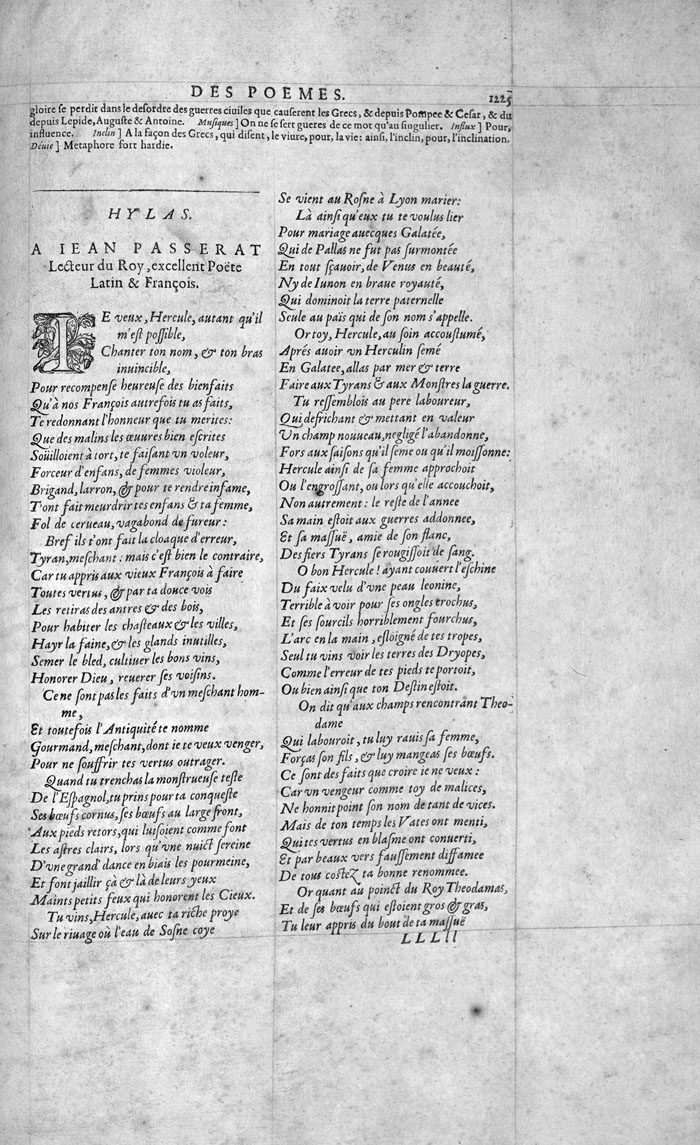 DES POËMES. 1225
gloire se perdit dans le desordre des guerres ciuiles que causerent les Grecs, & depuis Pompee & Cesar, & du
depuis Lepide, Auguste & Antoine. Musiques] On ne se sert gueres de ce mot qu'au singulier. Influx] Pour,
influence. Inclin] A la façon des Grecs, qui disent, le viure, pour, la vie: ainsi, l'inclin, pour, l'inclination.
Metaphore fort hardie.
HYLAS.
A IEAN PASSERAT
Lecteur du Roy, excellent Poëte
Latin & François.
IE veux, Hercule, autant qu'il
m'est possible,
Chanter ton nom, & ton bras
inuincible,
Pour recompense heureuse des bienfaits
Qu'à nos François autrefois tu as faits,
Te redonnant l'honneur que tu merites:
Que des malins les œuures bien escrites
Soüilloient à tort, te faisant vn voleur,
Forceur d'enfans, de femmes violeur,
Brigand, larron, & pour te rendre infame,
T'ont fait meurdrir tes enfans & ta femme,
Fol de cerueau, vagabond de fureur:
Bref ils t'ont fait la cloaque d'erreur,
Tyran, meschant: mais c'est bien le contraire,
Car tu appris aux vieux François à faire
Toutes vertus, & par ta douce vois
Les retiras des antres & des bois,
Pour habiter les chasteaux & les villes,
Hayr la faine, & les glands inutilles,
Semer le bled, cultiuer les bons vins,
Honorer Dieu, reuerer ses voisins.
Ce ne sont pas les faits d'vn meschant hom-
me,
Et toutefois l'Antiquité te nomme
Gourmand, meschant, dont ie te veux venger,
Pour ne souffrir tes vertus outrager.
Quand tu trenchas la monstrueuse teste
De l'Espagnol, tu prins pour ta conqueste
Ses bœufs cornus, ses bœufs au large front,
Aux pieds retors, qui luisoient comme font
Les astres clairs, lors qu'vne nuict sereine
D'vne grand' dance en biais les pourmeine,
Et font jaillir çà & là de leurs yeux
Maints petits feux qui honorent les Cieux.
Tu vins, Hercule, auec ta riche proye
Sur le riuage où l'eau de Sosne coye
Se vient au Rosne à Lyon marier:
Là ainsi qu'eux tu te voulus lier
Pour mariage auecques Galatée,
Qui de Pallas ne fut pas surmontée
En tout sçauoir, de Venus en beauté,
Ny de Iunon en braue royauté,
Qui dominoit la terre paternelle
Seule au païs qui de son nom s'appelle.
Or toy, Hercule, au soin accoustumé,
Aprés auoir vn Herculin semé
En Galatee, allas par mer & terre
Faire aux Tyrans & aux Monstres la guerre.
Tu ressemblois au pere laboureur,
Qui defrichant & mettant en valeur
Vn champ nouueau, negligé l'abandonne,
Fors aux saisons qu'il seme ou qu'il moissonne:
Hercule ainsi de sa femme approchoit
Ou l'engrossant, ou lors qu'elle accouchoit,
Non autrement: le reste de l'annee
Sa main estoit aux guerres addonnee,
Et sa massuë, amie de son flanc,
Des fiers Tyrans se rougissoit de sang.
O bon Hercule! ayant couuert l'eschine
Du faix velu d'vne peau leonine,
Terrible à voir pour ses ongles crochus,
Et ses sourcils horriblement fourchus,
L'arc en la main, esloigné de tes tropes,
Seul tu vins voir les terres des Dryopes,
Comme l'erreur de tes pieds te portoit,
Ou bien ainsi que ton Destin estoit.
On dit qu'aux champs rencontrant Theo-
dame
Qui labouroit, tu luy rauis sa femme,
Forças son fils, & luy mangeas ses bœufs.
Ce sont des faits que croire ie ne veux:
Car vn vengeur comme toy de malices,
Ne honnit point son nom de tant de vices.
Mais de ton temps les Vates ont menti,
Qui tes vertus en blasme ont conuerti,
Et par beaux vers faussement diffamee
De tous costez ta bonne renommee.
Or quant au poinct du Roy Theodamas,
Et de ses bœufs qui estoient gros & gras,
Tu leur appris du bout de ta massuë
LLLll